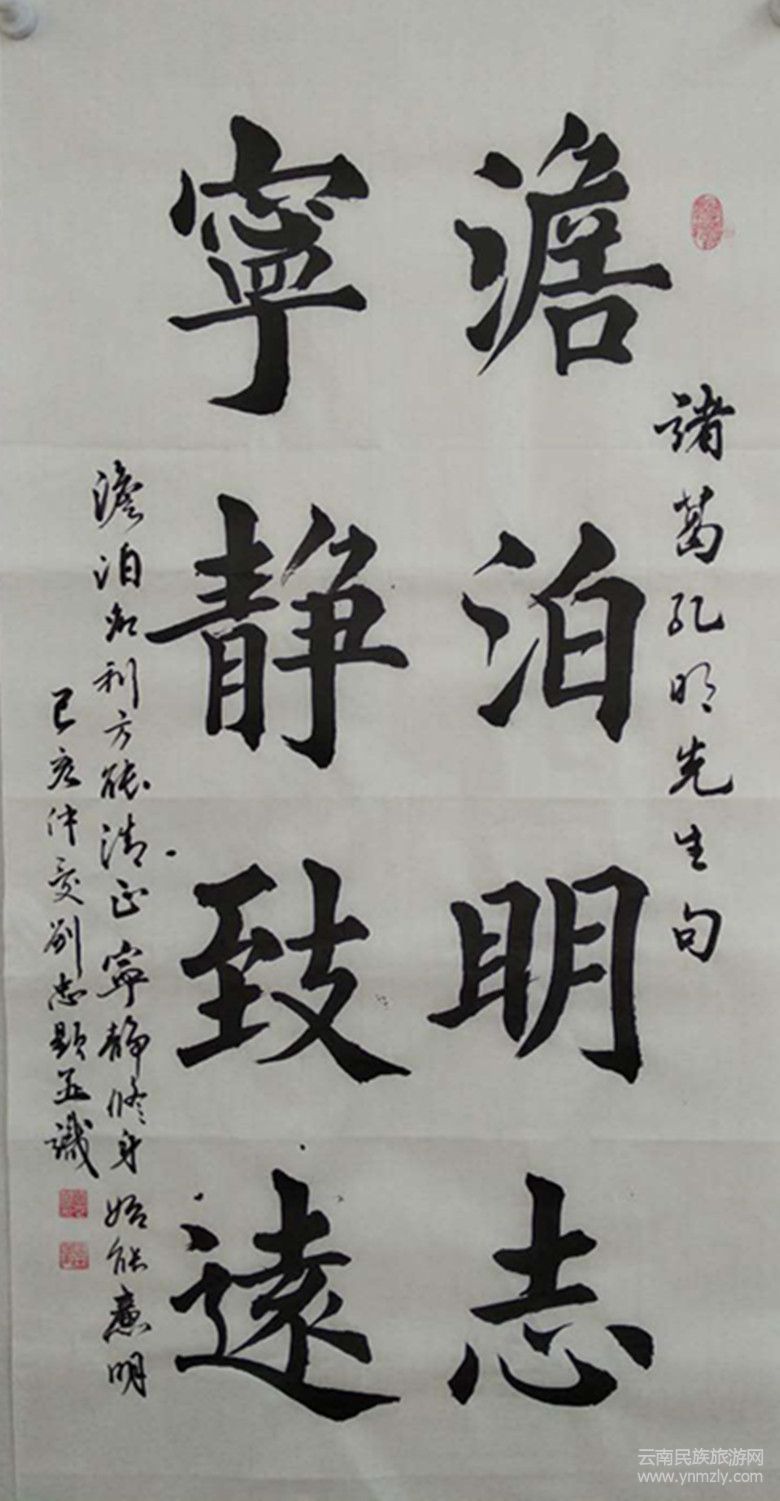 諸葛孔明先生句
澹泊明志
寧静致遠
澹泊名利方能清正寧静修身始能廉明
己亥仲夏刘忠題並識
云南民族旅游网
www.ynmzly.com